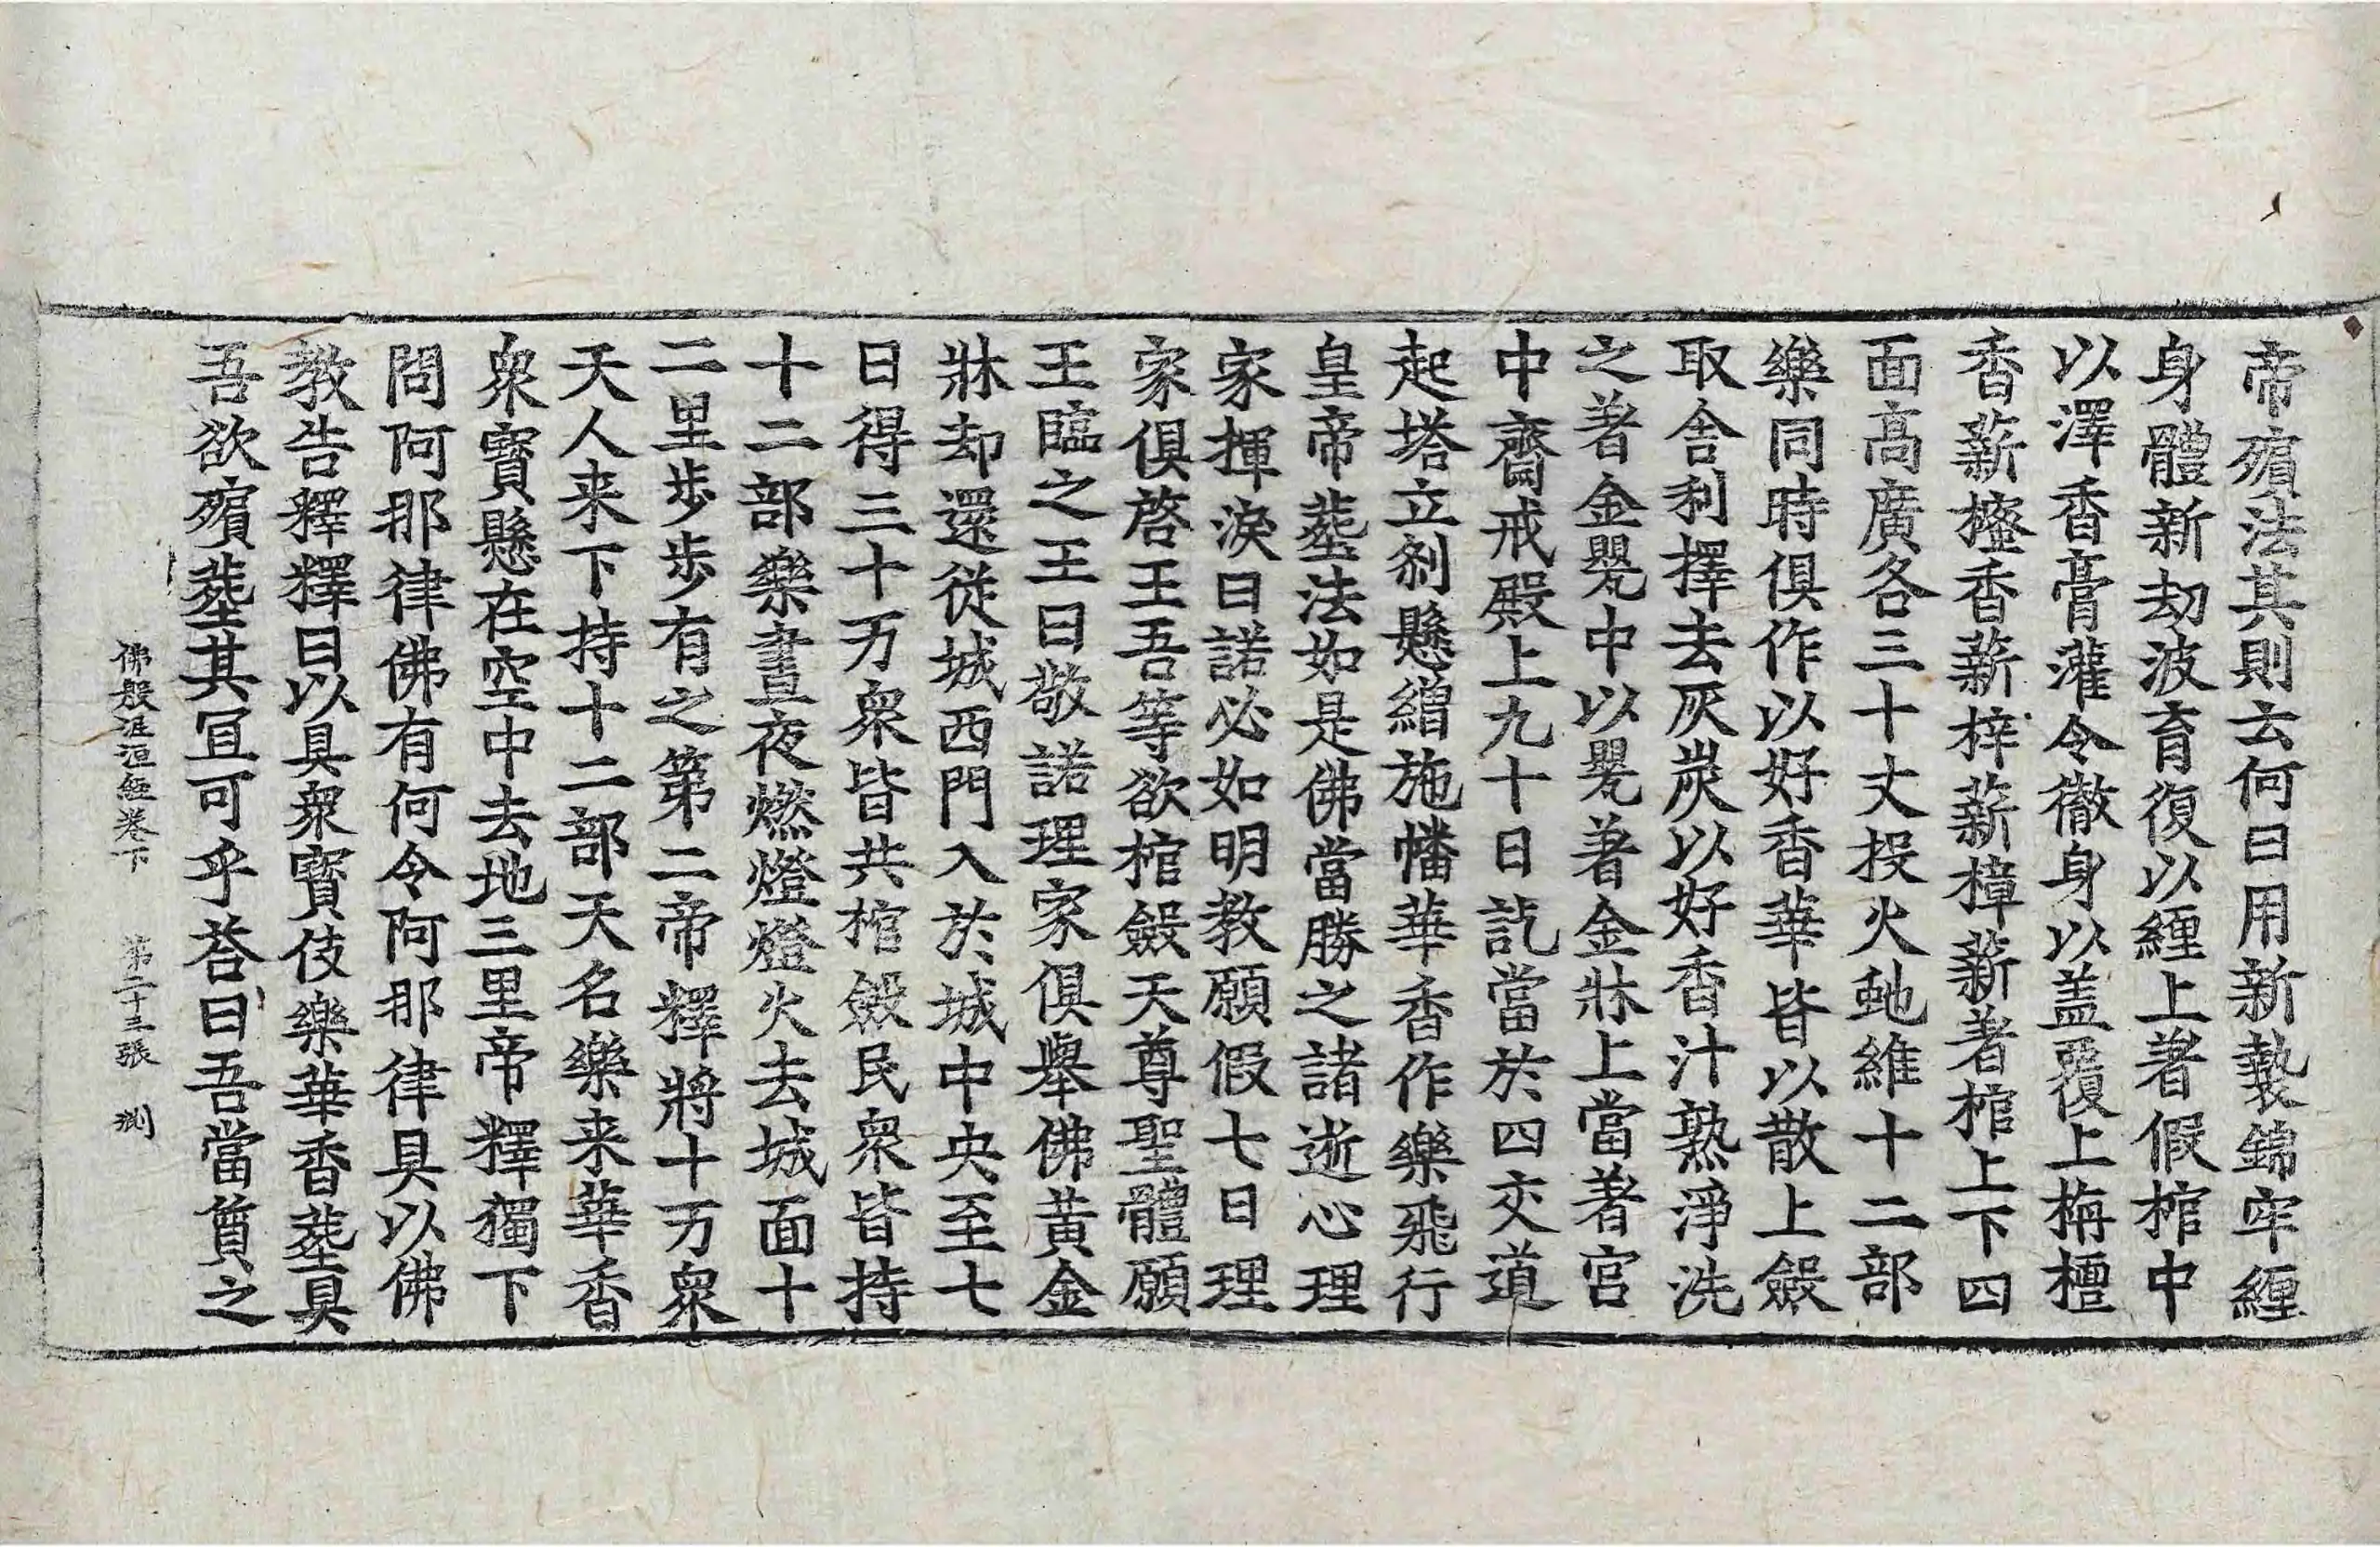 帝殯法其則云何曰用新㲲錦牢纏
身體新劫波育復以纏上著假棺中
以澤香膏灌令徹身以盖覆上栴檀
香薪櫁香薪梓薪樟薪著棺上下四
面高廣各三十丈投火虵維十二部
樂同時俱作以好香華皆以散上斂
取舍利擇去灰炭以好香汁熟淨洗
之著金甖中以甖著金牀上當著宫
中齋戒殿上九十日訖當於四交道
起塔立剎懸繒施幡華香作樂飛行
皇帝葬法如是佛當勝之諸逝心理
家揮淚曰諾必如明教願假七日理
家俱啓王吾等欲棺斂天尊聖體願
王臨之王曰敬諾理家俱舉佛黃金
牀却還從城西門入於城中央至七
日得三十万衆皆共棺斂民衆皆持
十二部樂晝夜燃燈燈火去城面十
二里步步有之第二帝釋將十万衆
天人来下持十二部天名樂来華香
衆寶懸在空中去地三里帝釋獨下
問阿那律佛有何令阿那律具以佛
教告釋釋曰以具衆寶伎樂華香葬具
吾欲殯葬其冝可乎荅曰吾當質之
佛般泥洹經卷下 第二十三張